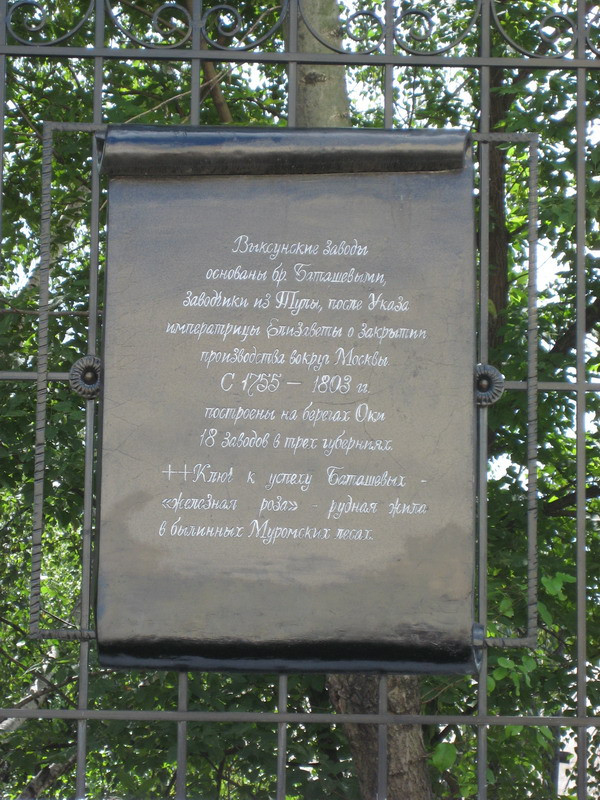 Выксунские заводы
основаны бр. Баташевыми,
заводчики из Тулы, после Указа
императрицы Елизаветы о закрытии
производства вокруг Москвы.
С 1755 – 1803 гг.
построены на берегах Оки
18 заводов в трех губерниях.
++Ключ к успеху Баташевых -
«железная роза» - рудная жила
в былинных Муромских лесах.